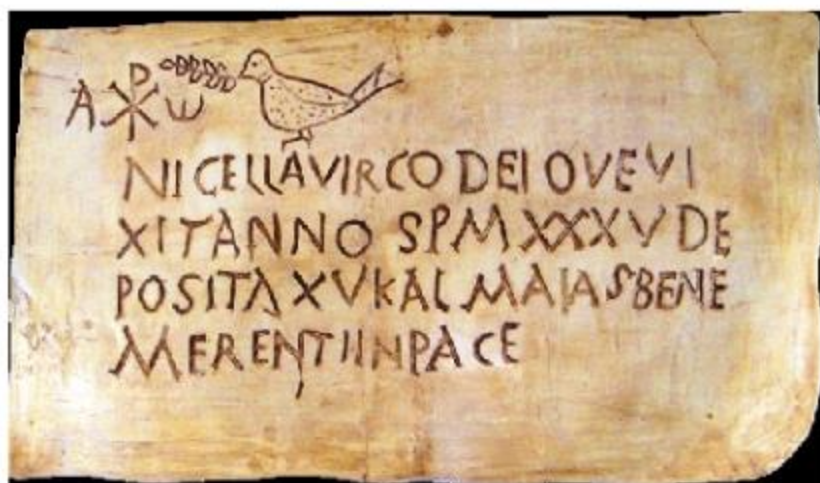 Α ☧ ω
NICELLAVIRCO DEI OVEVI
XITANNO SPM XXXV DE
POSITA XV KAL MAIASBENE
MERENTIINPACE